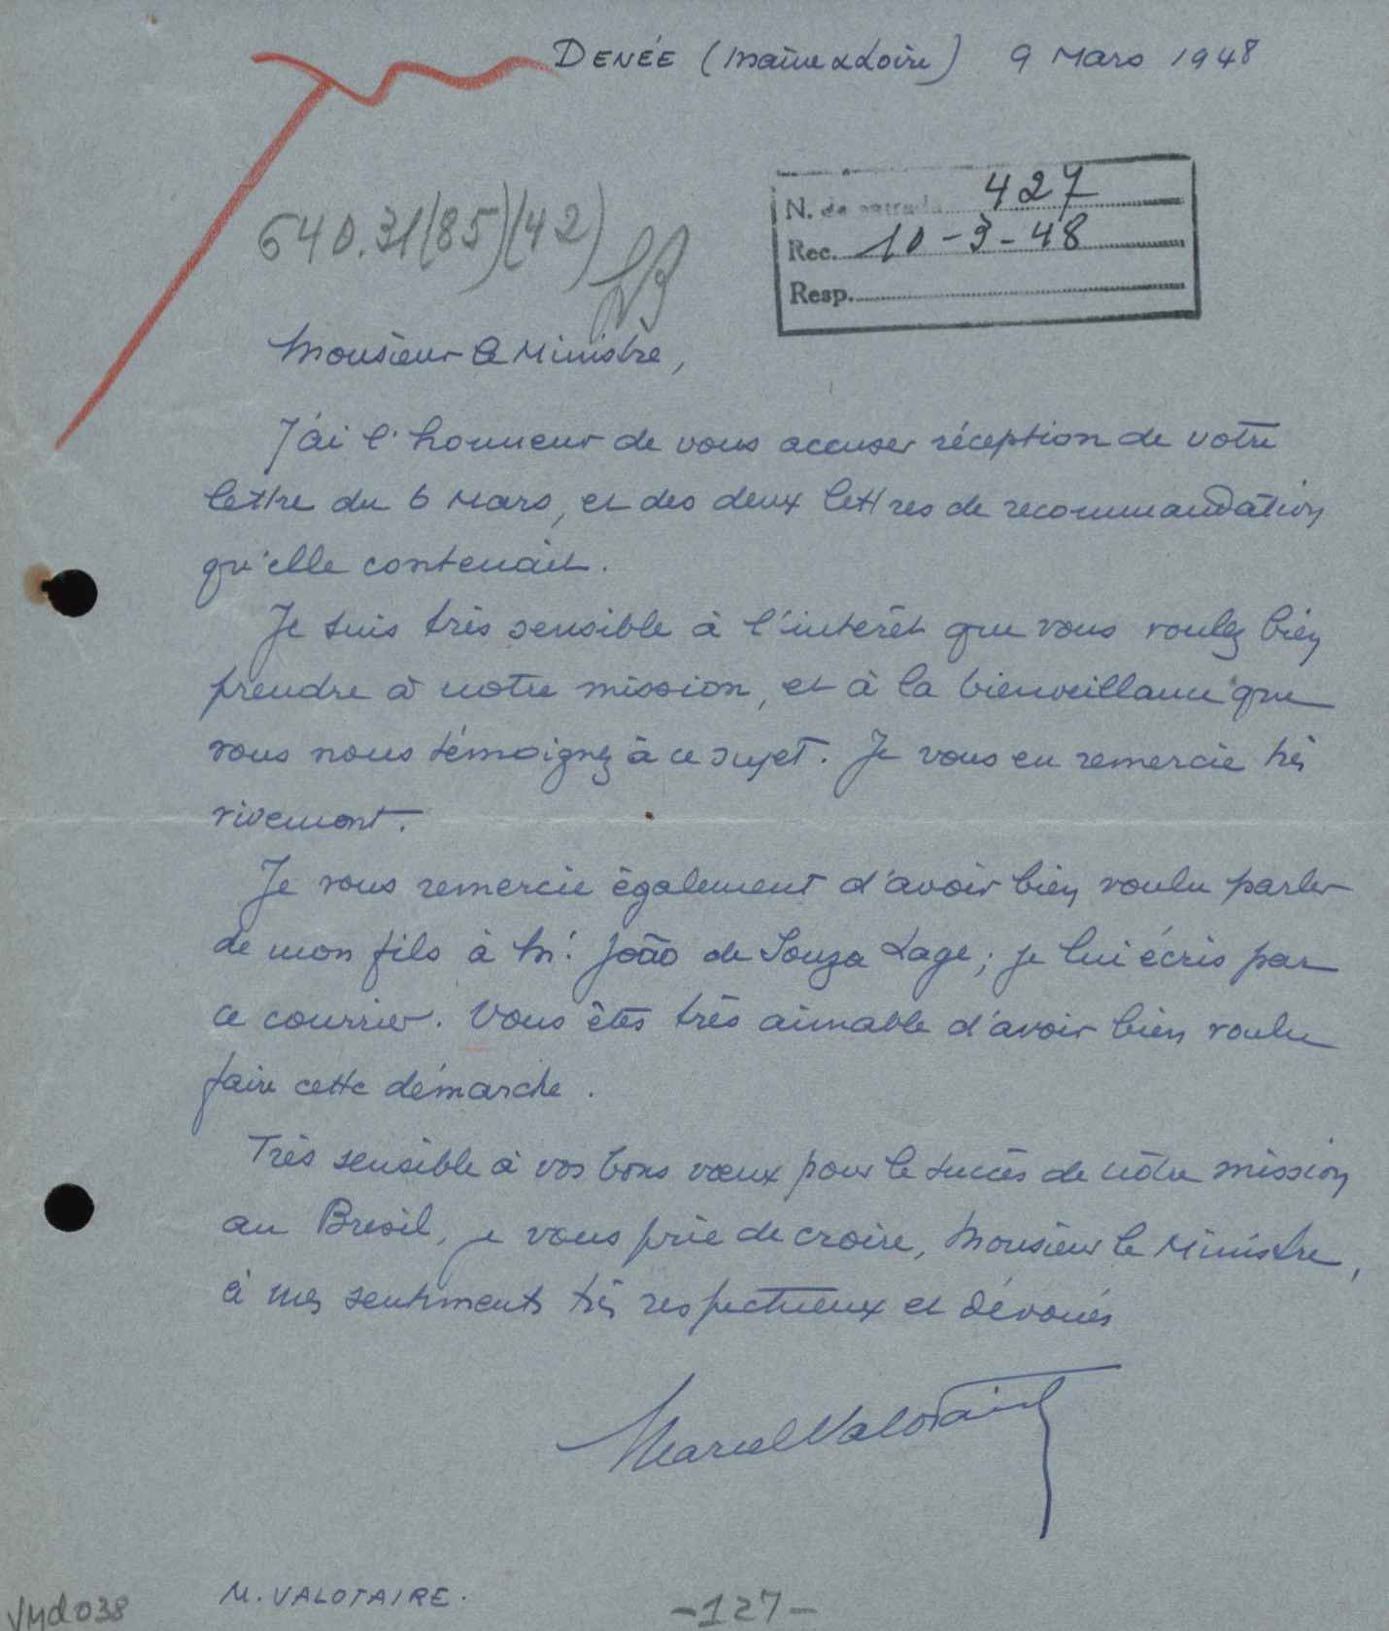 DENÉE (Maine & Loire) 9 Mars 1948
N. de entrada 427
640.31(85)(42)
Rec. 10-3-48
Resp.
Monsieur le Ministre,
J'ai l'honneur de vous accuser réception de votre
lettre du 6 Mars, et des deux lettres de recommandation
qu'elle contenait.
Je suis très sensible à l'intérêt que vous voulez bien
prendre à notre mission, et à la bienveillance que
vous nous témoignez à ce sujet. Je vous en remercie très
vivement.
Je vous remercie également d'avoir bien voulu parler
de mon fils à M. João de Souza Lage; je lui écris par
ce courrier. Vous êtes très aimable d'avoir bien voulu
faire cette démarche.
Très sensible à vos bons vœux pour le succès de notre mission
au Brésil, je vous prie de croire, Monsieur le Ministre,
à mes sentiments très respectueux et dévoués
Marcel Valotaire
M. VALOTAIRE.
-127-
VMd038